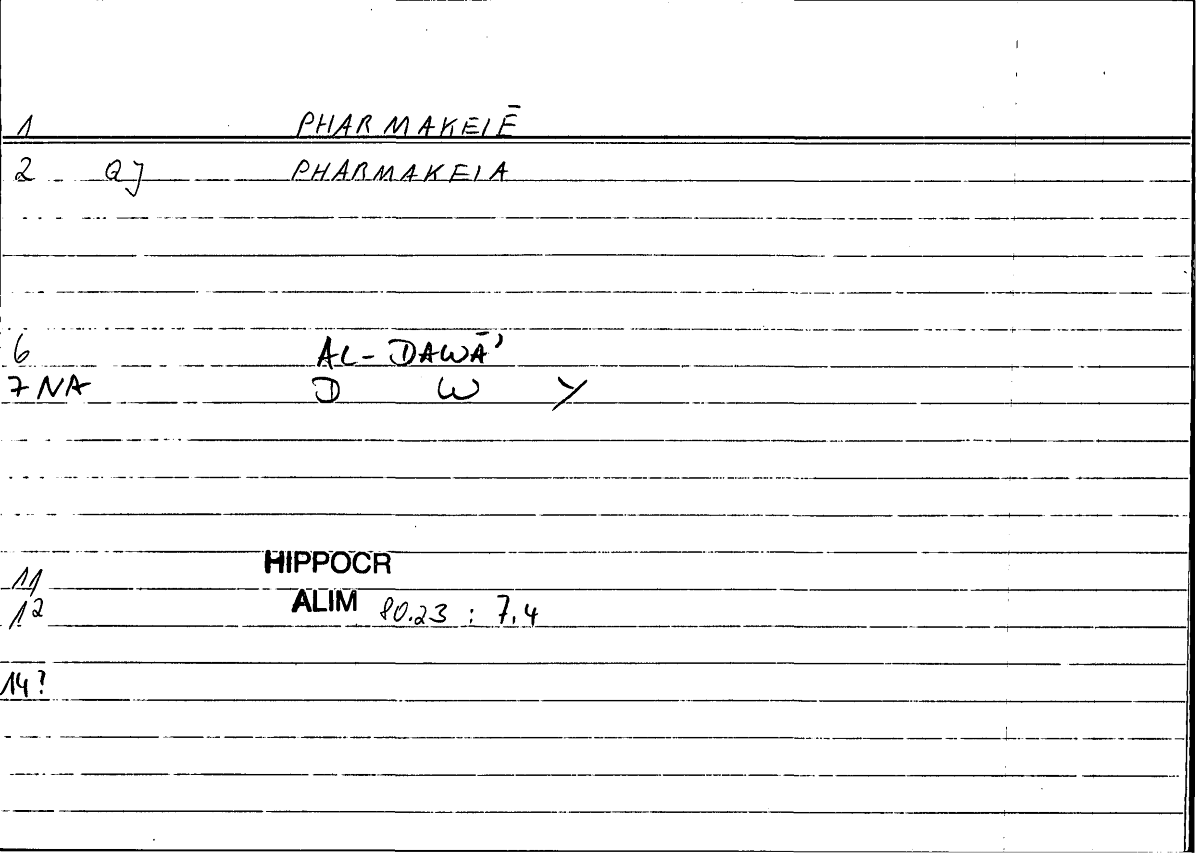 1 PHARMAKEIĒ
2 QJ PHARMAKEIA
6 AL-DAWĀʾ
7 NA D W Y
11 HIPPOCR
12 ALIM 80.23 : 7.4
14?